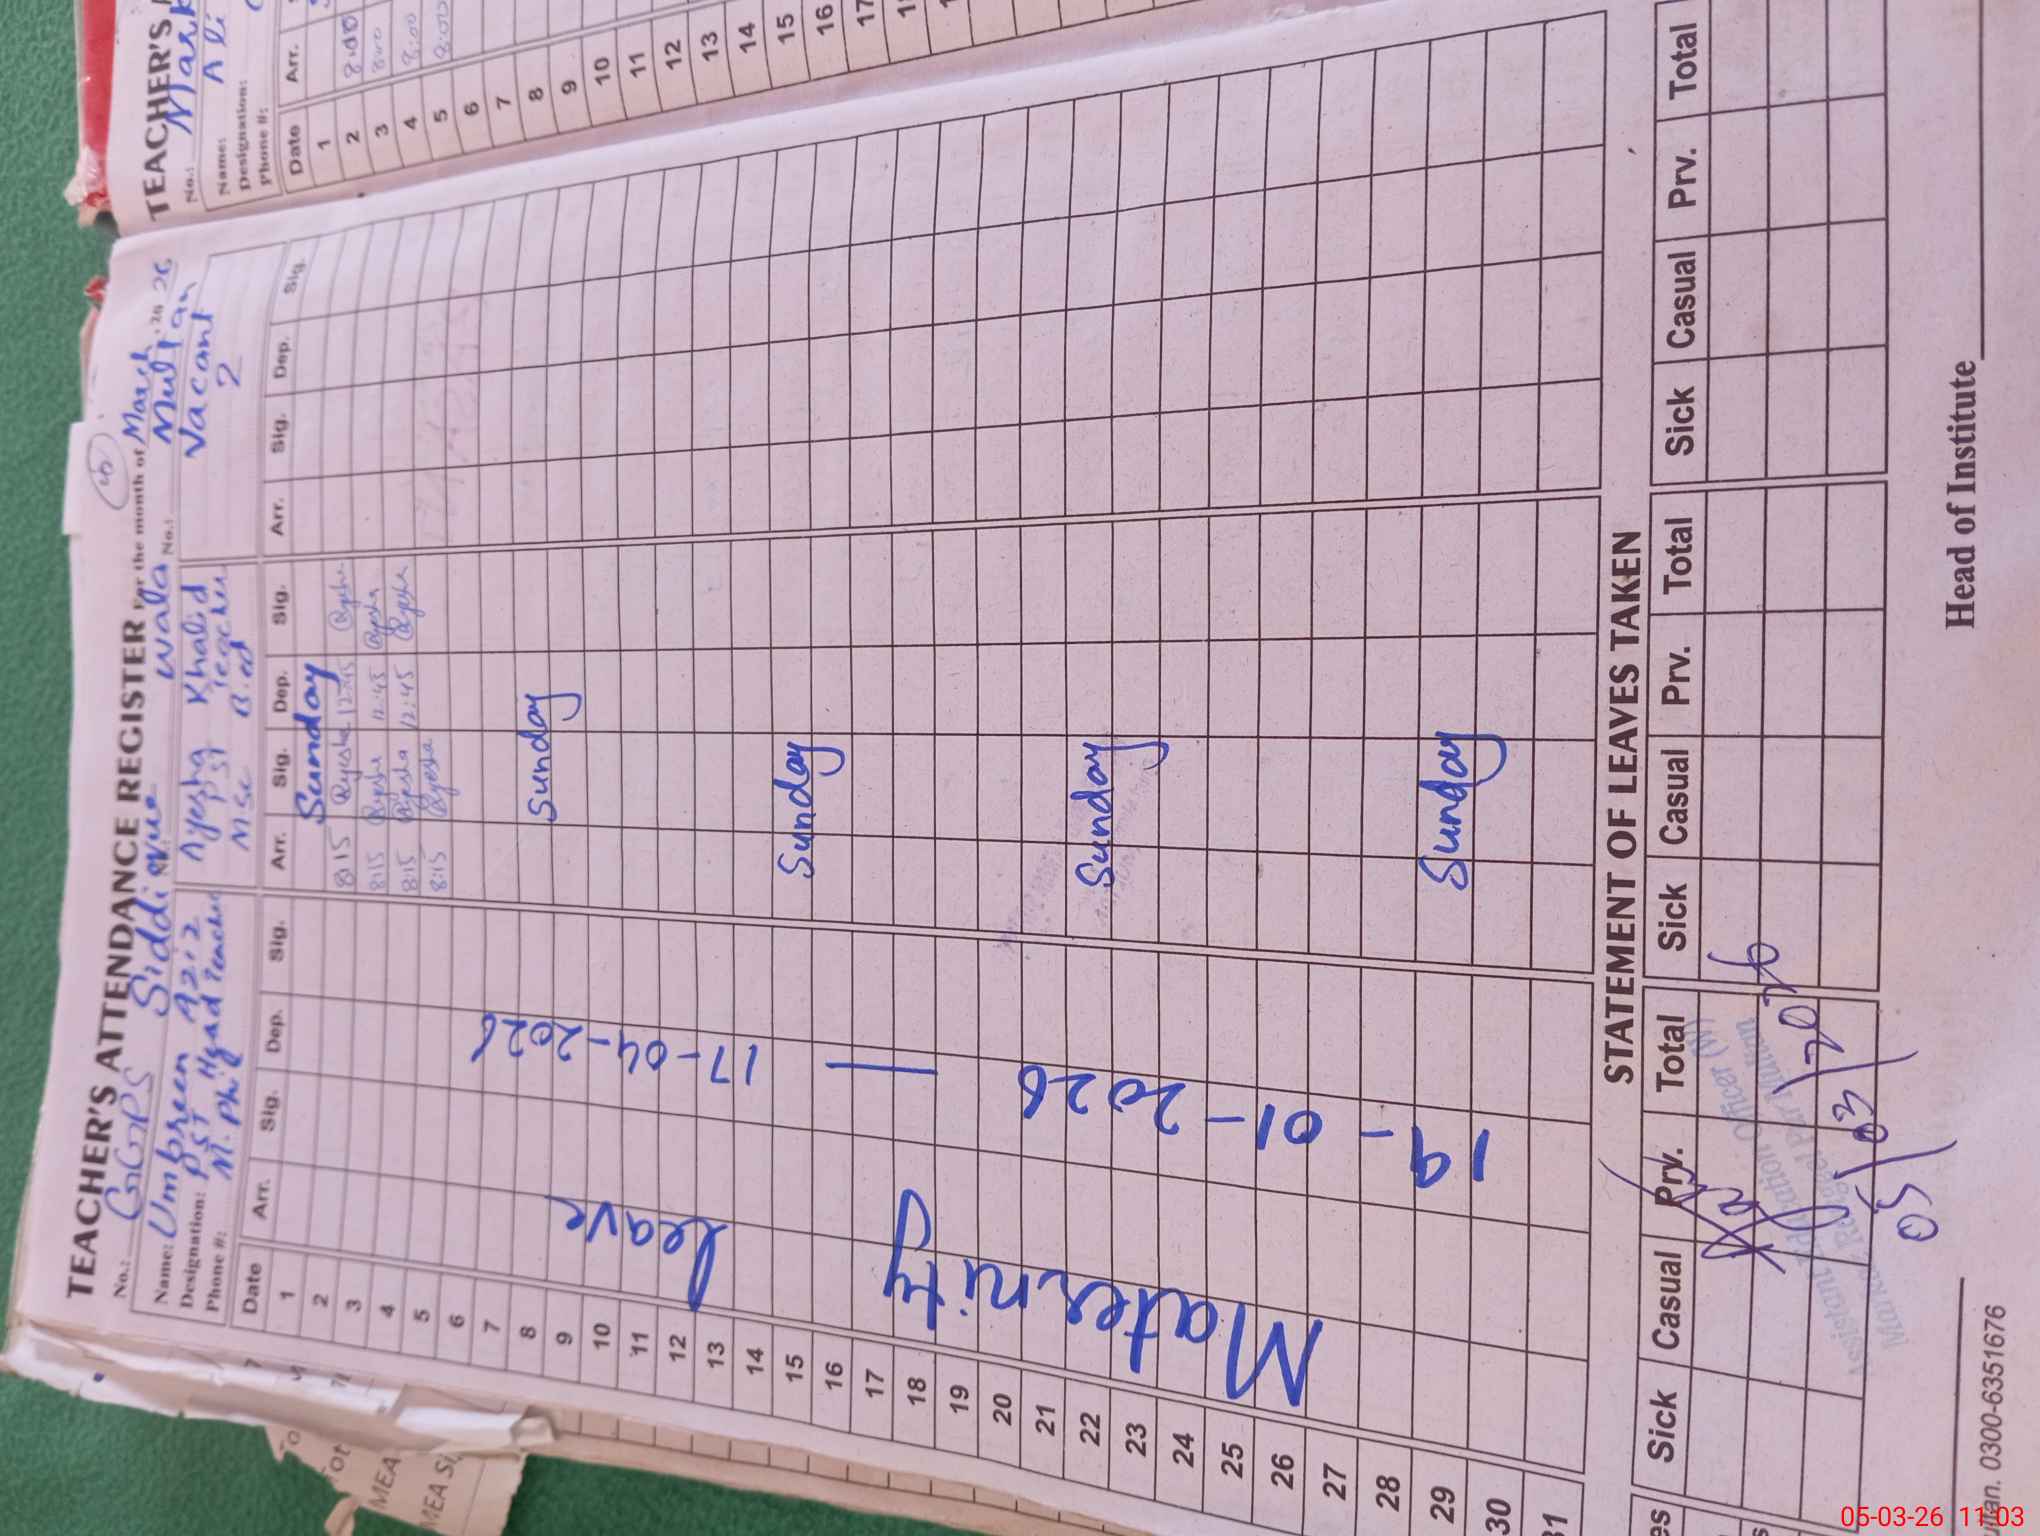 TEACHER'S ATTENDANCE REGISTER For the month of March 2026
No.: GGPS Siddique wala Multan
Name: Umbreen Aziz
Designation: PST Head Teacher
Phone #: M. Phil
Ayesha Khalid
PST Teacher
M.Sc B.ed
No.:
Vacant
2
Date Arr. Sig. Dep. Sig. Arr. Sig. Dep. Sig. Arr. Sig. Dep. Sig.
1 Sunday
2 8:15 Ayesha 12:45 Ayesha
3 8:15 Ayesha 12:45 Ayesha
4 8:15 Ayesha 12:45 Ayesha
5 8:15 Ayesha
6
7
8 Sunday
9
10
11
12
13
14
15 Sunday
16
17
18
19
20
21
22 Sunday
23
24
25
26
27
28
29 Sunday
30
31
Maternity leave
19-01-2026 — 17-04-2026
STATEMENT OF LEAVES TAKEN
Sick Casual Prv. Total Sick Casual Prv. Total Sick Casual Prv. Total
Assistant Education Officer (W)
Markaz
Multan
05/03/2026
Head of Institute
an. 0300-6351676
TEACHER'S
No.: Mark
Name: Ali
Designation:
Phone #:
Date Arr.
1
2 8:00
3 8:00
4 8:00
5 8:00
6
7
8
9
10
11
12
13
14
15
16
17
MEA
MEA Si
05-03-26 11:03